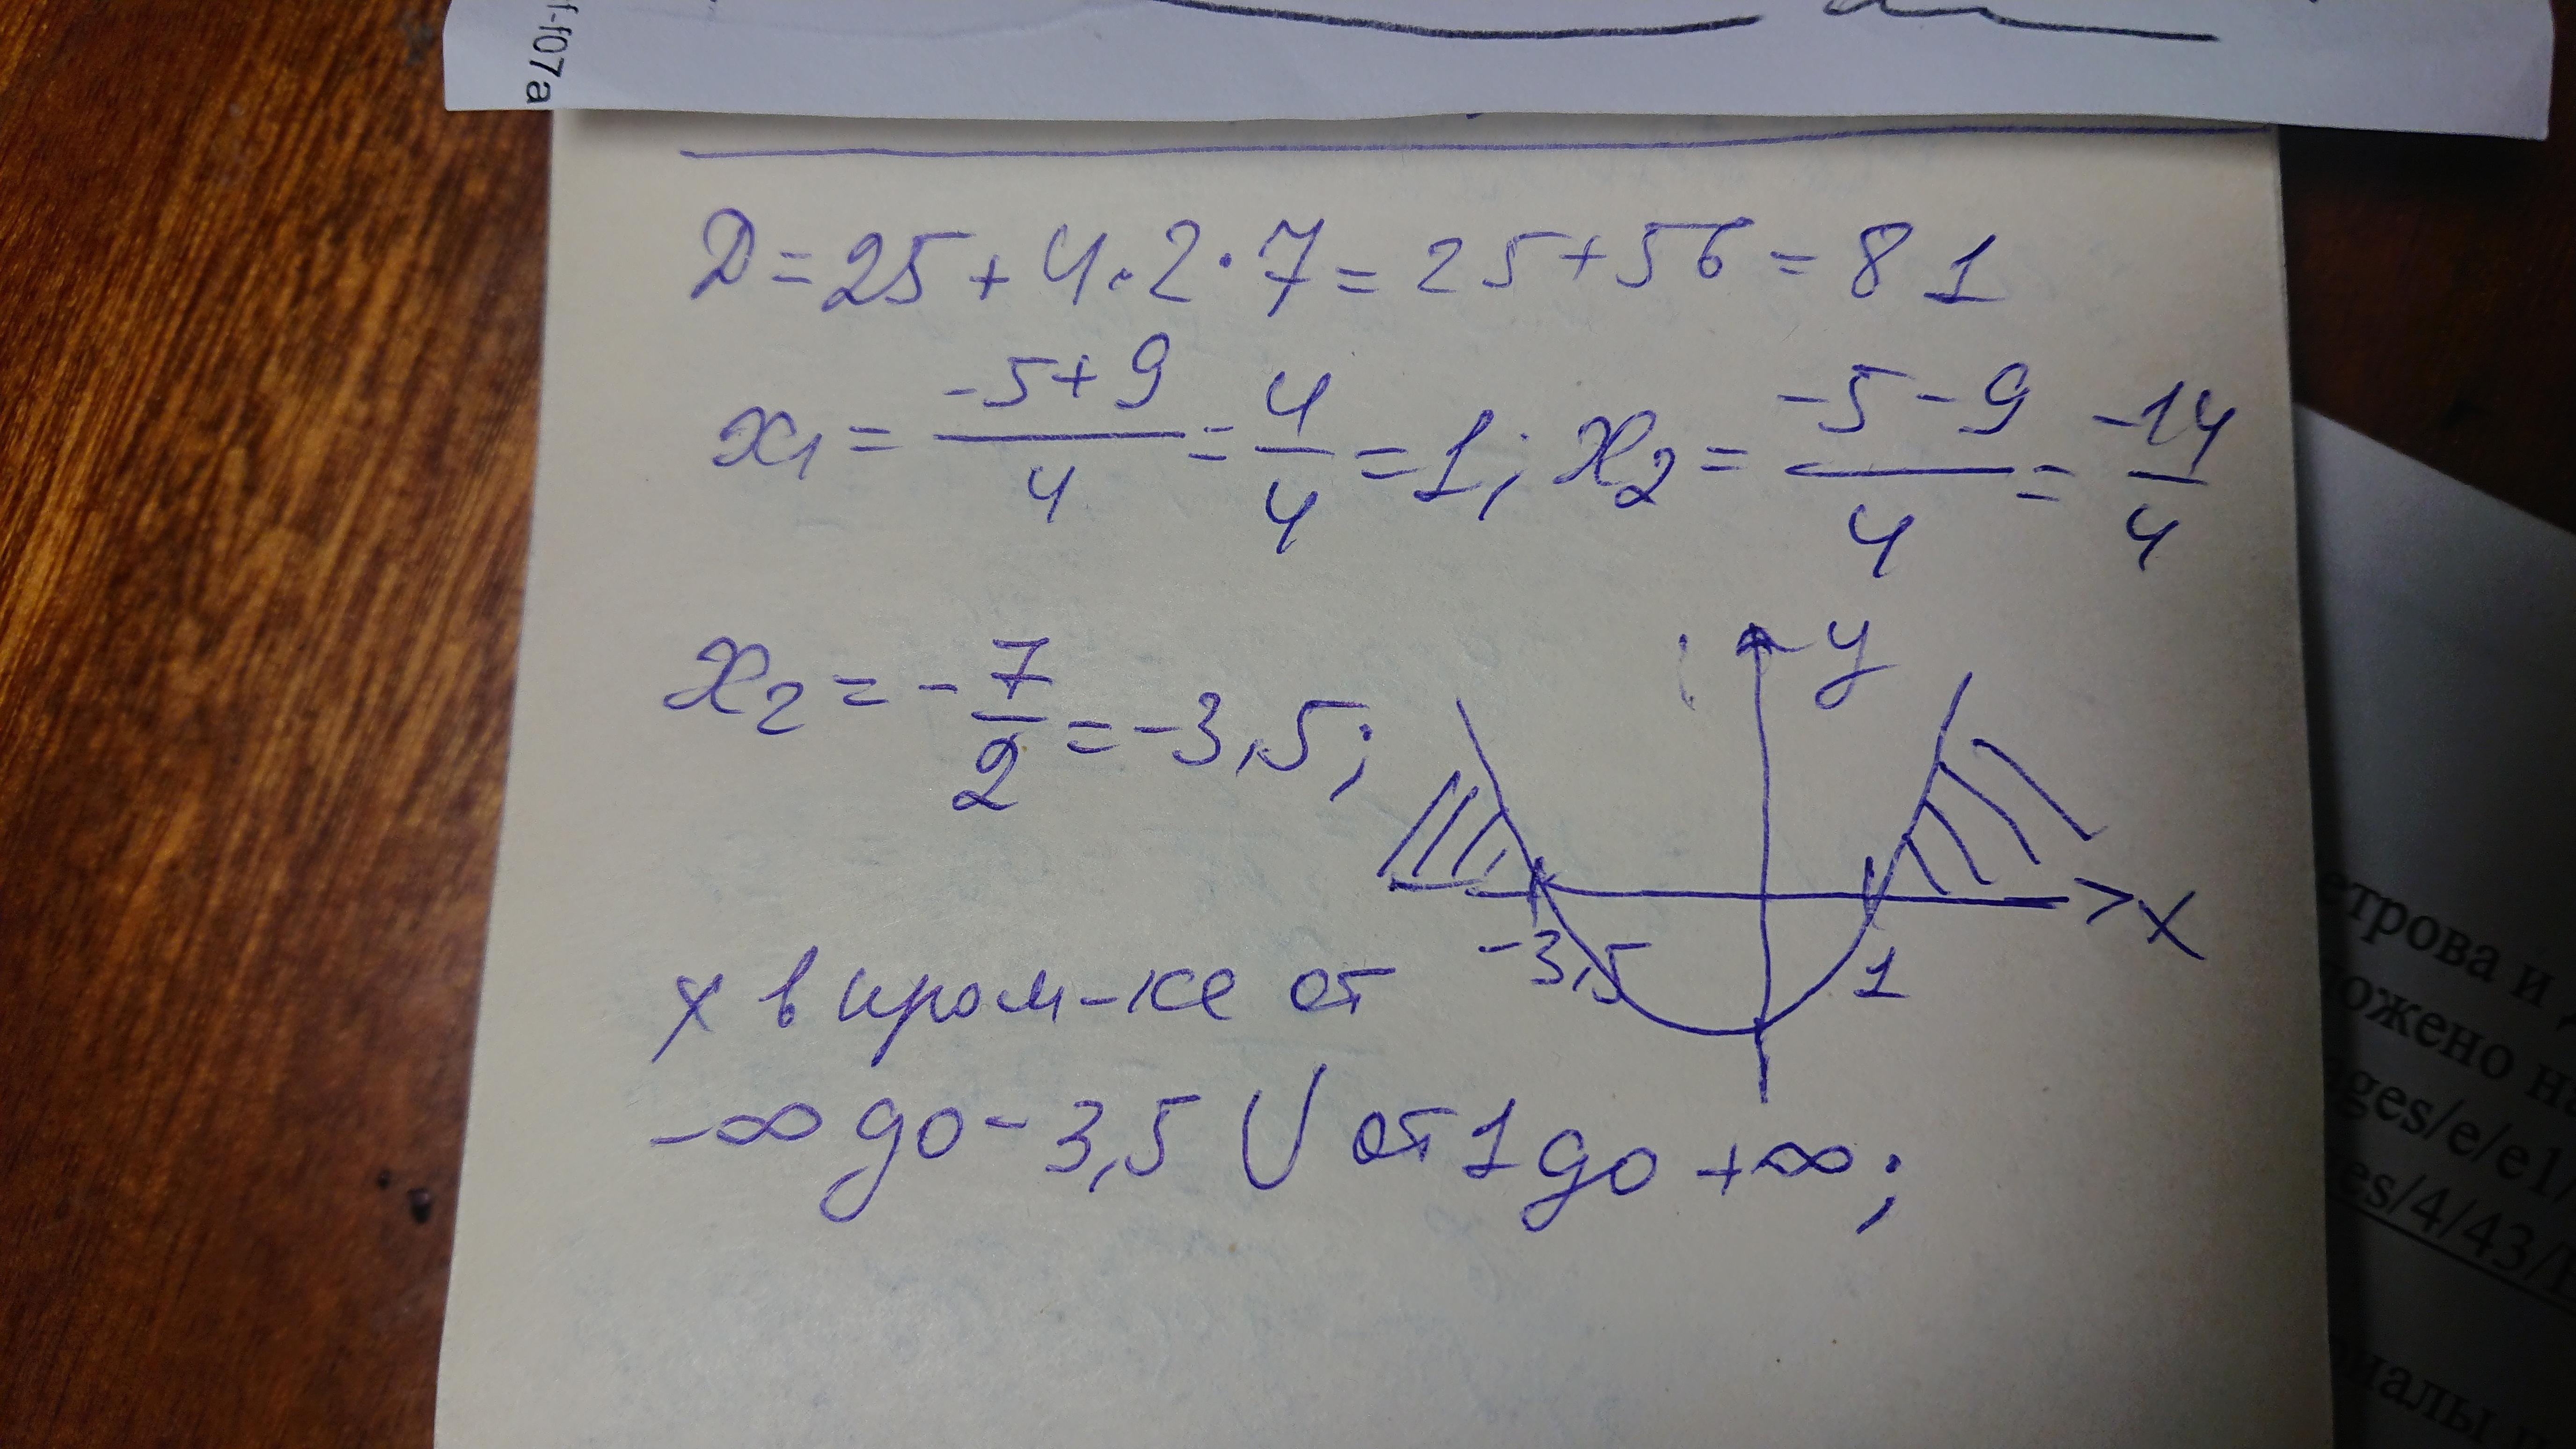 f-f07a
D = 25 + 4 · 2 · 7 = 25 + 56 = 81
x1 = -5+9/4 = 4/4 = 1; x2 = -5-9/4 = -14/4
x2 = -7/2 = -3,5;
y
x
-3,5
1
x в пром-ке от
-∞ до -3,5 U от 1 до +∞;
етрова и
ожено н
ges/e/e1/
es/4/43/
иалы